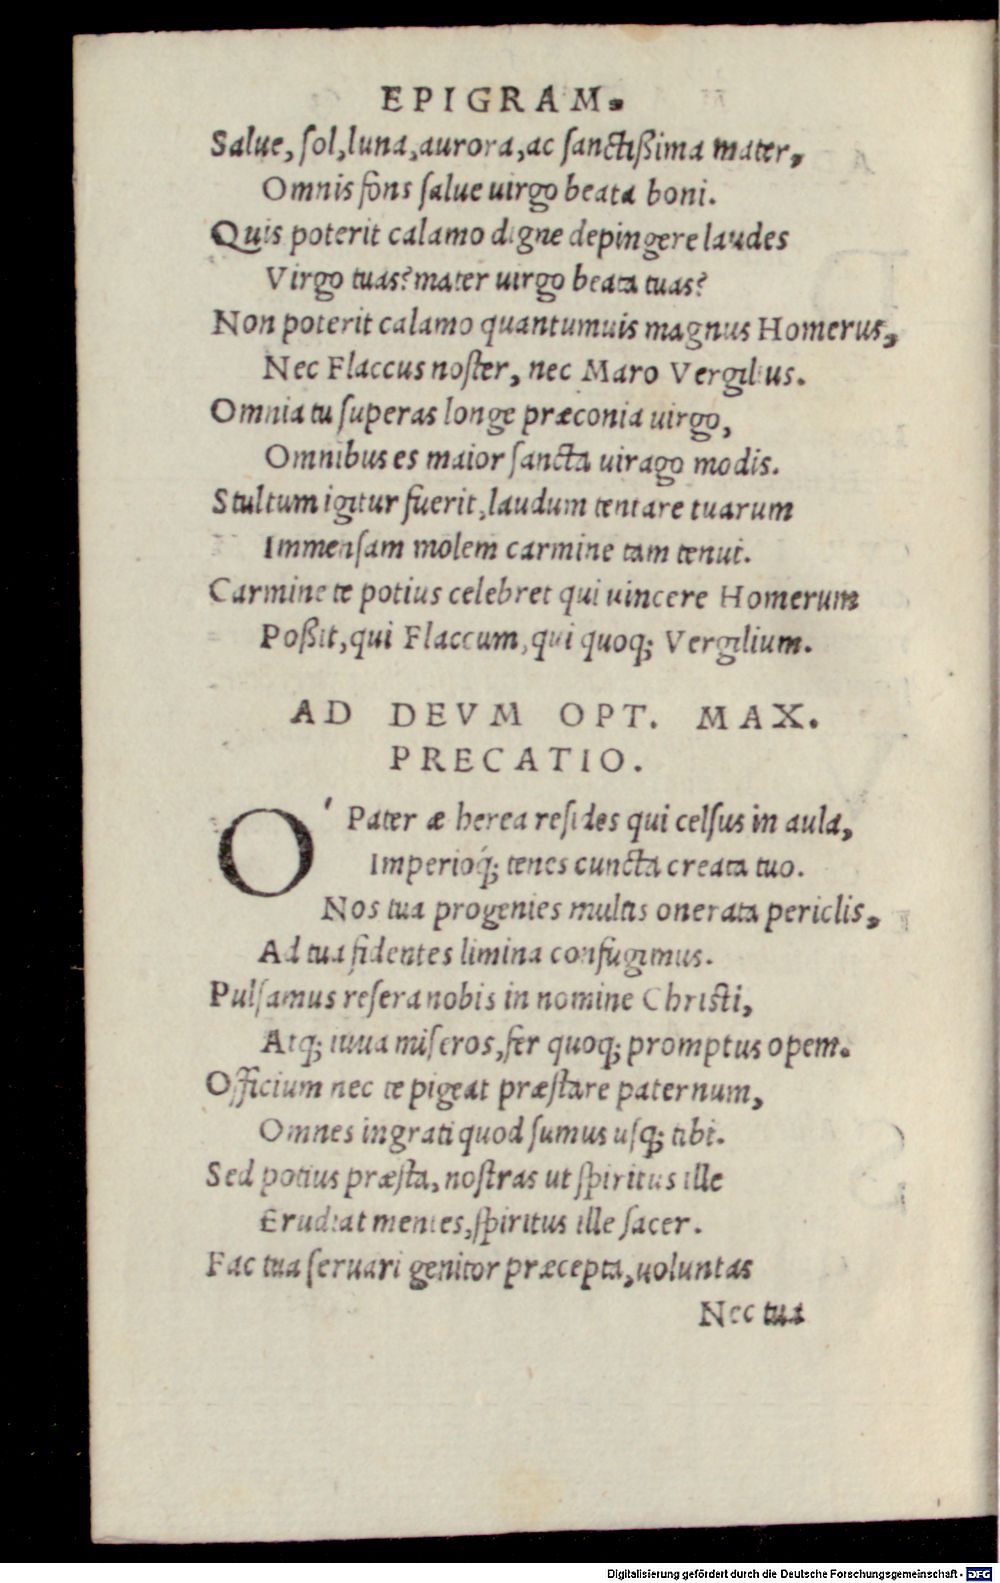 EPIGRAM.
Salue, ſol, luna, aurora, ac ſanctißima mater,
Omnis fons ſalue uirgo beata boni.
Quis poterit calamo digne depingere laudes
Virgo tuas? mater uirgo beata tuas?
Non poterit calamo quantumuis magnus Homerus,
Nec Flaccus noſter, nec Maro Vergilius.
Omnia tu ſuperas longe præconia uirgo,
Omnibus es maior ſancta uirago modis.
Stultum igitur fuerit, laudum tentare tuarum
Immenſam molem carmine tam tenui.
Carmine te potius celebret qui uincere Homerum
Poßit, qui Flaccum, qui quoq; Vergilium.
AD DEVM OPT. MAX.
PRECATIO.
O' Pater æherea reſides qui celſus in aula,
Imperioq́; tenes cuncta creata tuo.
Nos tua progenies multis onerata periclis,
Ad tua fidentes limina confugimus.
Pulſamus, reſera nobis in nomine Chriſti,
Atq; iuua miſeros, fer quoq; promptus opem.
Officium nec te pigeat præſtare paternum,
Omnes ingrati quod ſumus uſq; tibi.
Sed potius præſta, noſtras ut ſpiritus ille
Erudiat mentes, ſpiritus ille ſacer.
Fac tua ſeruari genitor præcepta, uoluntas
Nec tua
Digitalisierung gefördert durch die Deutsche Forschungsgemeinschaft - DFG